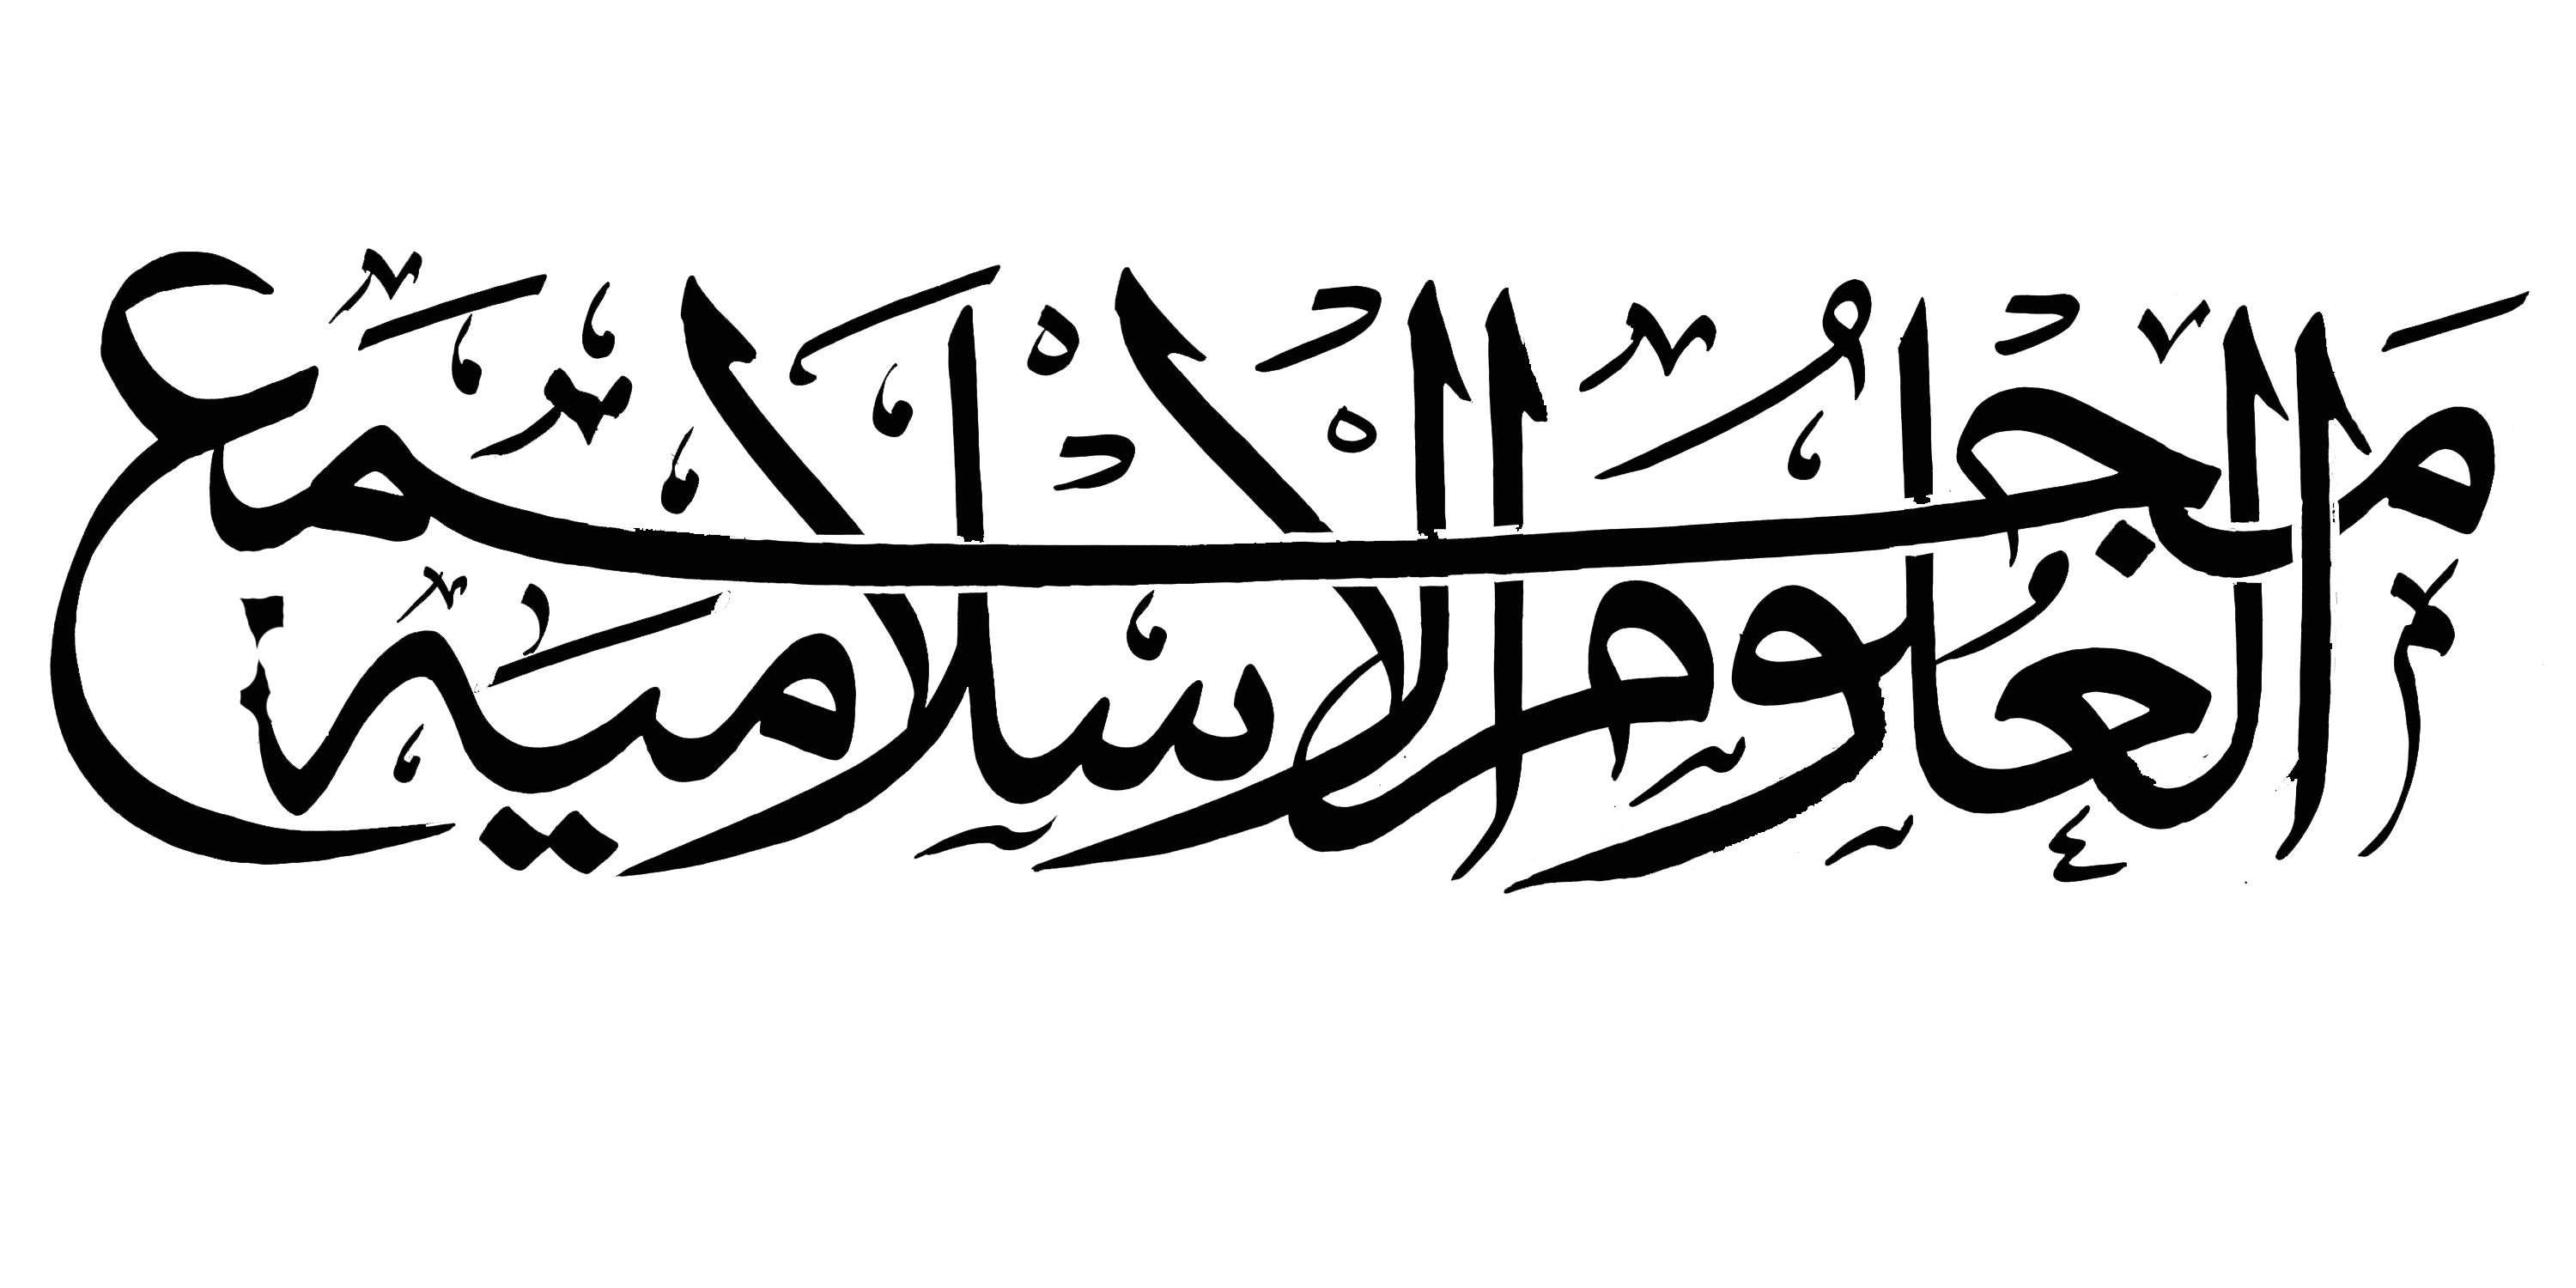 مجمع العلوم الاسلامية